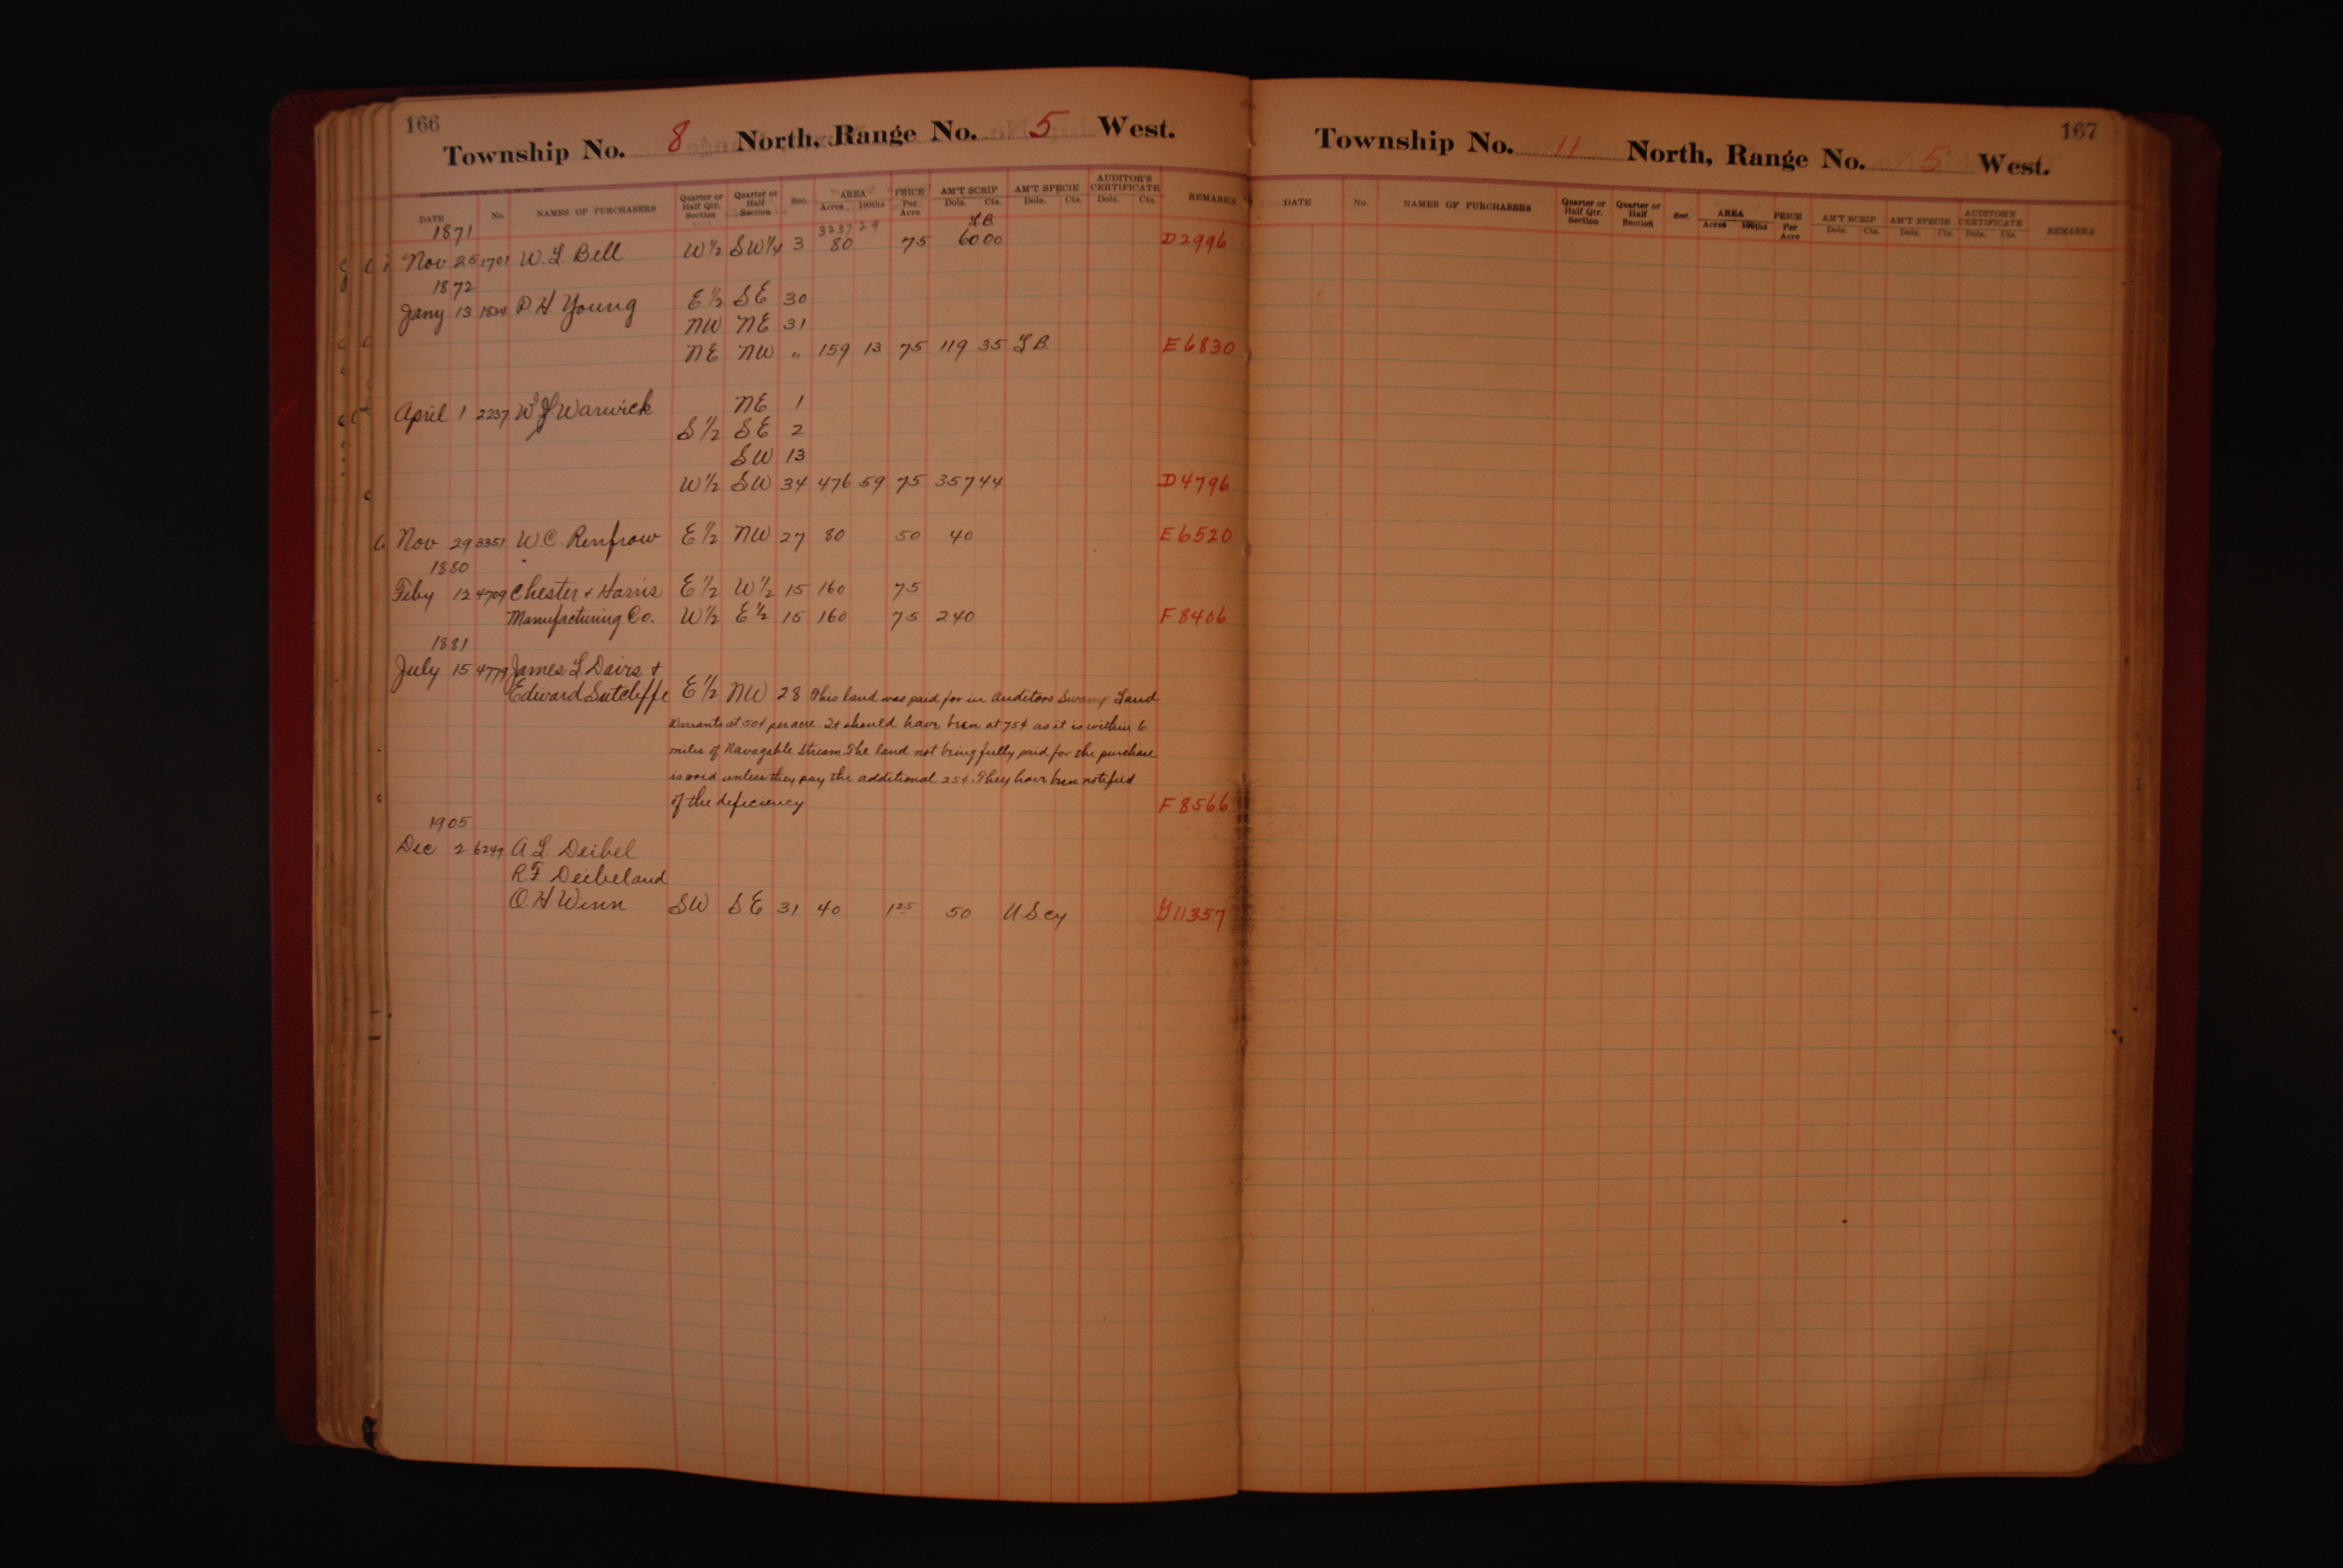 166
Township No. 8 North, Range No. 5 West.
DATE No. NAMES OF PURCHASERS Quarter or Half Qtr. Section Quarter or Half Section Sec. AREA Acres 100ths PRICE Per Acre AM'T SCRIP Dols. Cts. AM'T SPECIE Dols. Cts. AUDITOR'S CERTIFICATE Dols. Cts. REMARKS
1871 3237 29
Nov 25 1701 W. L. Bell W½ SW¼ 3 80 75 6000 D2996
1872
Jany 13 1834 P. H Young E½ SE 30
NW NE 31
NE NW " 159 13 75 119 35 L B E6830
April 1 2237 W J Warwick NE 1
S½ SE 2
SW 13
W½ SW 34 476 59 75 357 44 D4796
Nov 29 3351 W. C. Renfrow E½ NW 27 80 50 40 E6520
1880
Feby 12 4709 Chester + Harris E½ W½ 15 160 75
Manufacturing Co. W½ E½ 15 160 75 240 F8406
1881
July 15 4779 James L Davis +
Edward Sutcliffe E½ NW 28 This land was paid for in Auditors Swamp Land
Warrants at 50¢ per acre. It should have been at 75¢ as it is within 6
miles of Navagable Stream. The land not being fully paid for the purchase
is void unless they pay the additional 25¢. They have been notified
of the deficiency F8566
1905
Dec 2 6249 A L Deibel
R F Deibel and
O H Winn SW SE 31 40 1 25 50 U S cy G11357
167
Township No. 11 North, Range No. 5 West.
DATE No. NAMES OF PURCHASERS Quarter or Half Qtr. Section Quarter or Half Section Sec. AREA Acres 100ths PRICE Per Acre AM'T SCRIP Dols. Cts. AM'T SPECIE Dols. Cts. AUDITOR'S CERTIFICATE Dols. Cts. REMARKS